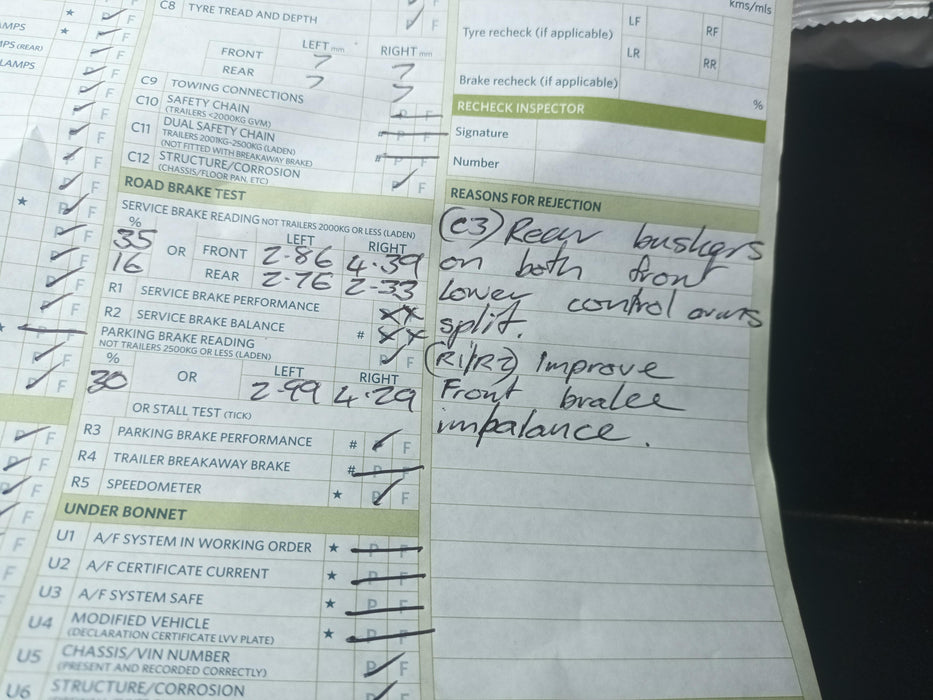 AMPS
MPS (REAR)
LAMPS
C8 TYRE TREAD AND DEPTH
LEFT mm RIGHT mm
FRONT 7 7
REAR 7 7
C9 TOWING CONNECTIONS
C10 SAFETY CHAIN
(TRAILERS <2000KG GVM)
C11 DUAL SAFETY CHAIN
TRAILERS 2001KG-2500KG (LADEN)
(NOT FITTED WITH BREAKAWAY BRAKE)
C12 STRUCTURE/CORROSION
(CHASSIS/FLOOR PAN, ETC)
P F
ROAD BRAKE TEST
SERVICE BRAKE READING NOT TRAILERS 2000KG OR LESS (LADEN)
% LEFT RIGHT
35 OR FRONT 2.86 4.39
16 REAR 2.76 2.33
R1 SERVICE BRAKE PERFORMANCE
R2 SERVICE BRAKE BALANCE #
PARKING BRAKE READING
P F
NOT TRAILERS 2500KG OR LESS (LADEN)
% LEFT RIGHT
30 OR 2.99 4.29
OR STALL TEST (TICK)
R3 PARKING BRAKE PERFORMANCE # F
R4 TRAILER BREAKAWAY BRAKE # P F
R5 SPEEDOMETER ★ P F
UNDER BONNET
U1 A/F SYSTEM IN WORKING ORDER ★ P F
U2 A/F CERTIFICATE CURRENT ★ P F
U3 A/F SYSTEM SAFE ★ P F
U4 MODIFIED VEHICLE
(DECLARATION CERTIFICATE LVV PLATE) ★ P F
U5 CHASSIS/VIN NUMBER
(PRESENT AND RECORDED CORRECTLY) P F
U6 STRUCTURE/CORROSION
kms/mls
Tyre recheck (if applicable) LF RF
LR RR
Brake recheck (if applicable) %
RECHECK INSPECTOR
Signature
Number
REASONS FOR REJECTION
(C3) Rear bushers
on both front
lower control arms
split.
(R1/R2) Improve
Front brake
imbalance.